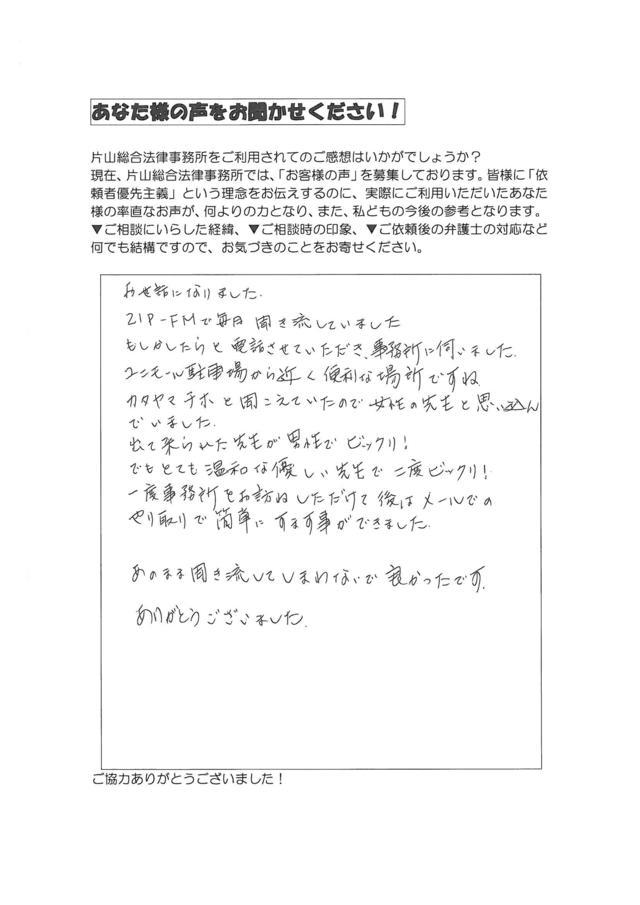 あなた様の声をお聞かせください！
片山総合法律事務所をご利用されてのご感想はいかがでしょうか？
現在、片山総合法律事務所では、「お客様の声」を募集しております。皆様に「依
頼者優先主義」という理念をお伝えするのに、実際にご利用いただいたあなた
様の率直なお声が、何よりの力となり、また、私どもの今後の参考となります。
▼ご相談にいらした経緯、▼ご相談時の印象、▼ご依頼後の弁護士の対応など
何でも結構ですので、お気づきのことをお寄せください。
お世話になりました.
ZIP-FMで毎日 聞き流していました
もしかしたらと 電話させていただき、事務所に伺いました.
ユニモール駐車場から近く便利な場所ですね
カタヤマ チホ と聞こえていたので 女性の先生と思い込ん
でいました.
出て来られた先生が男性で ビックリ!
でもとても温和な優しい先生で 二度ビックリ!
一度事務所をお訪ねしただけで 後は メールでの
やり取りで簡単にすます事ができました.
あのまま聞き流してしまわないで 良かったです.
ありがとうございました.
ご協力ありがとうございました！